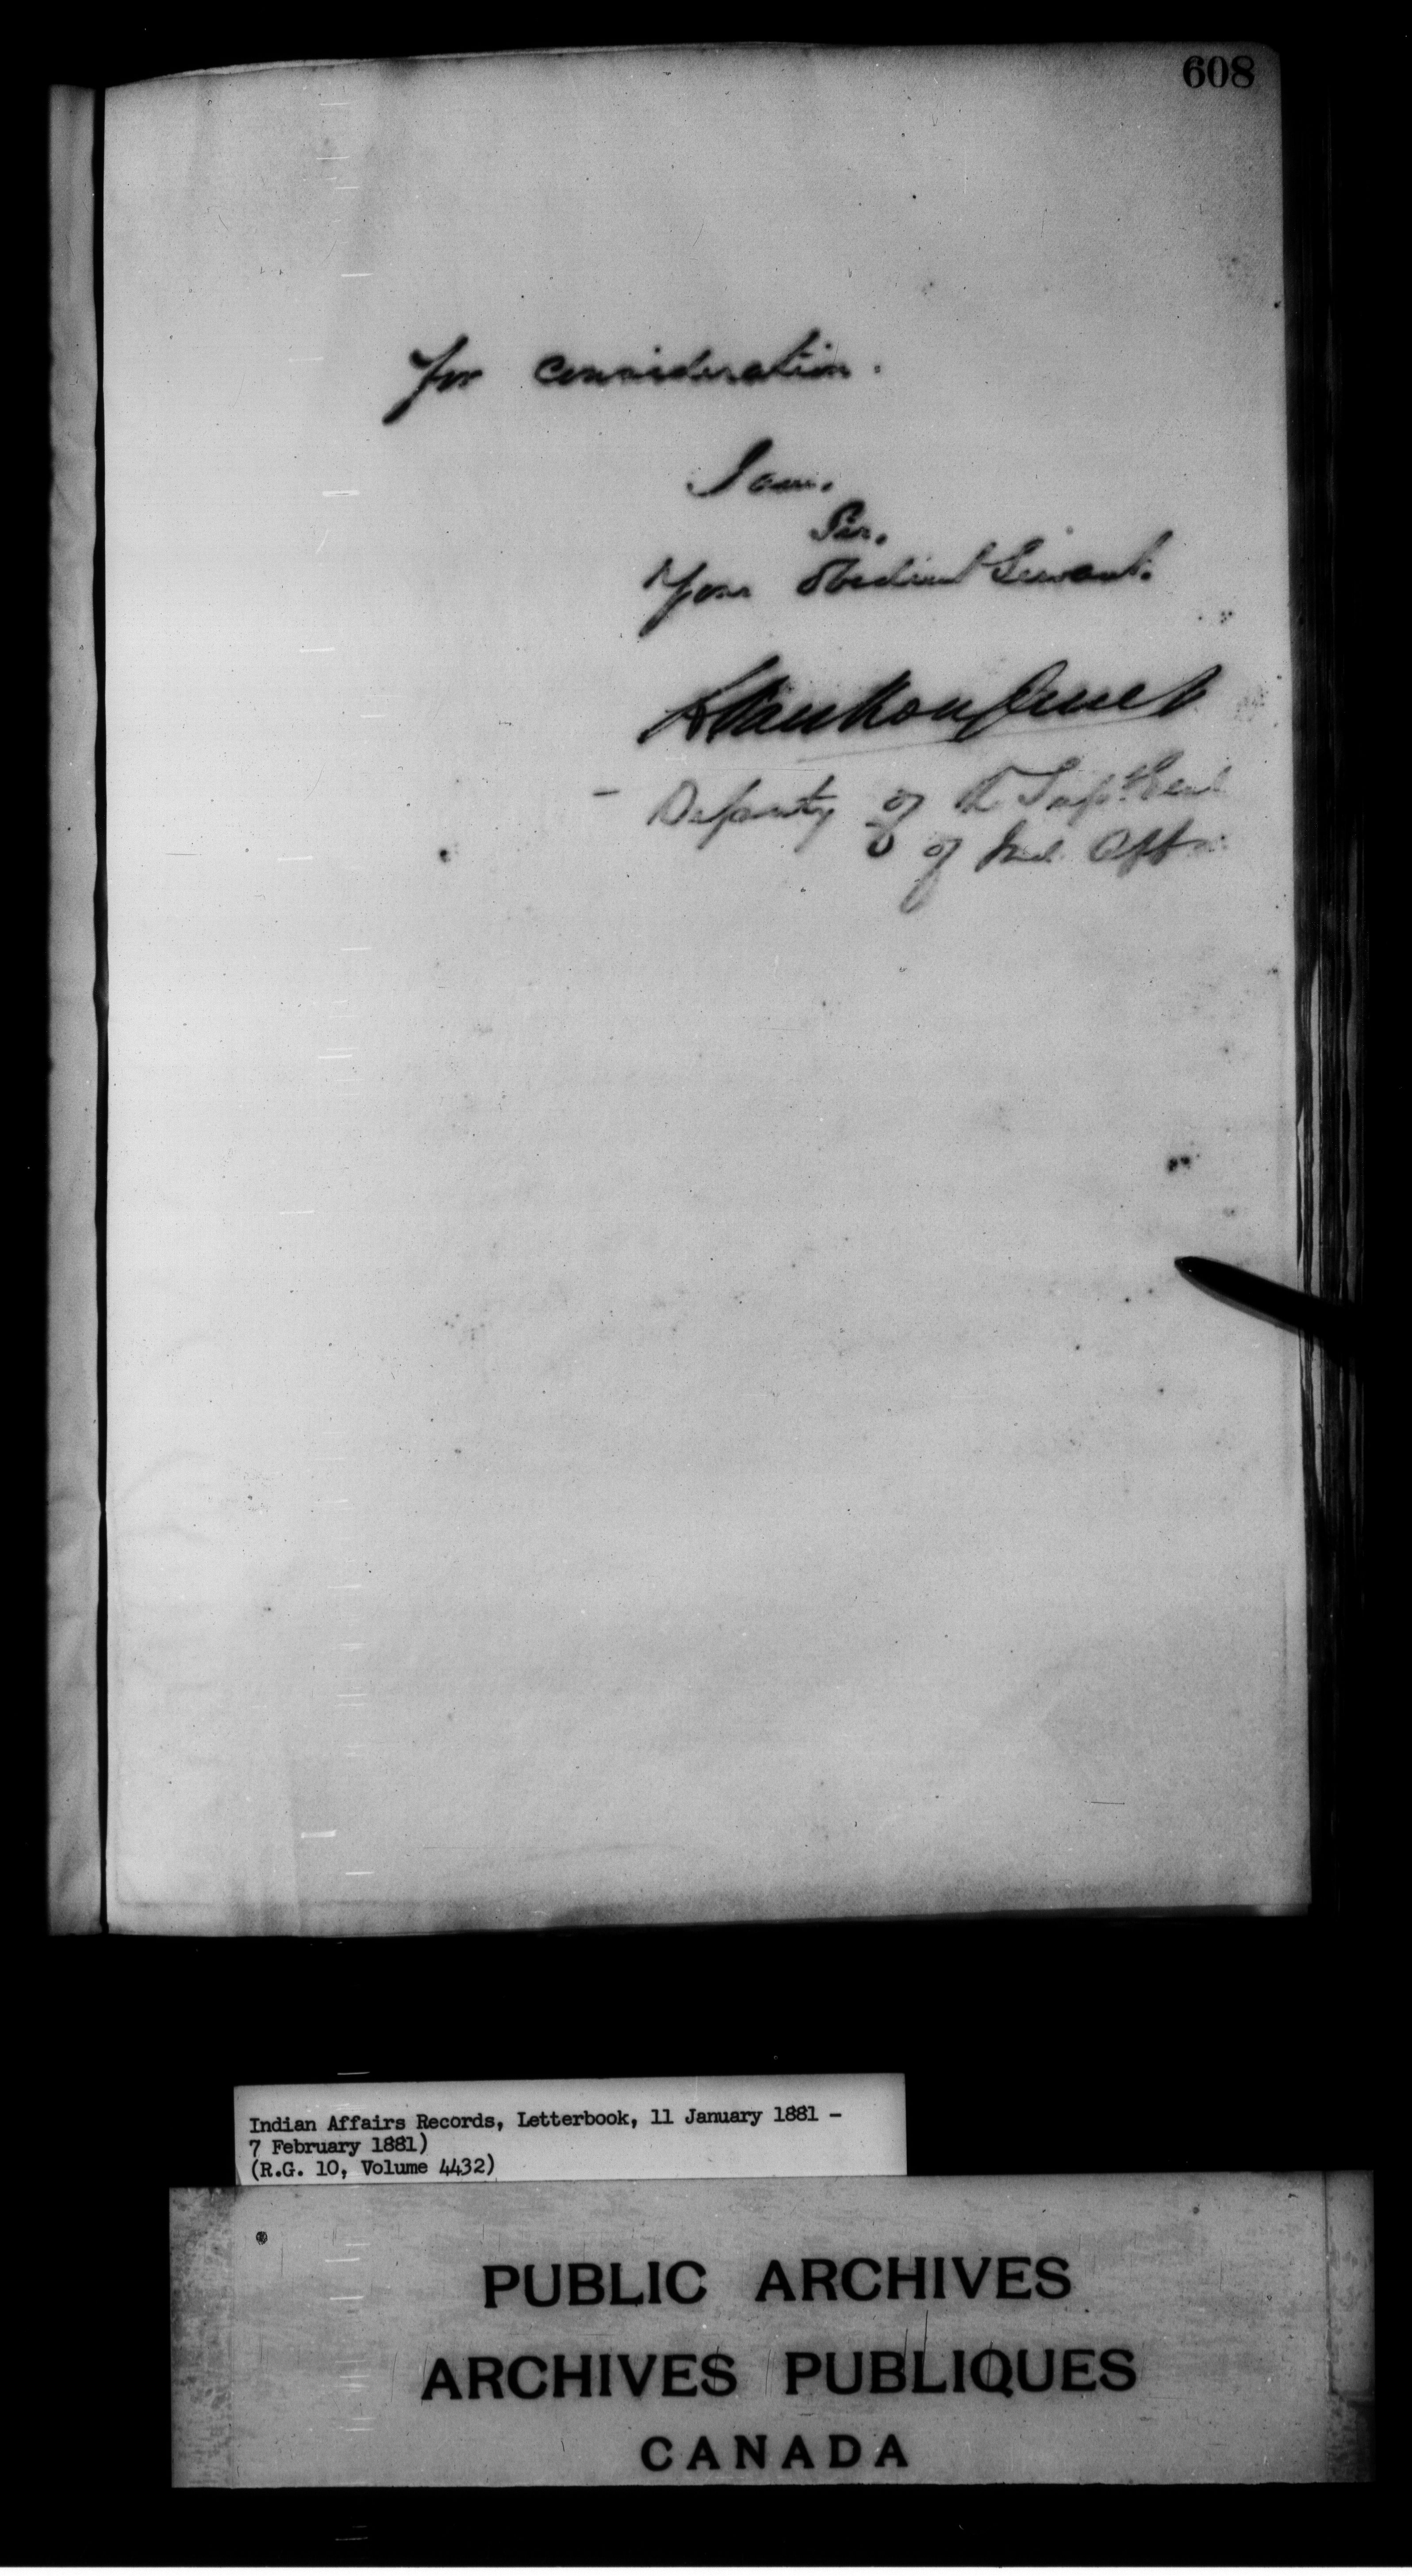 608
for consideration.
I am.
Sir.
Your Obedient Servant.
L VanKoughnet
Deputy of the Supt. Genl
of Ind. Affrs
Indian Affairs Records, Letterbook, 11 January 1881 -
7 February 1881)
(R.G. 10, Volume 4432)
PUBLIC ARCHIVES
ARCHIVES PUBLIQUES
CANADA